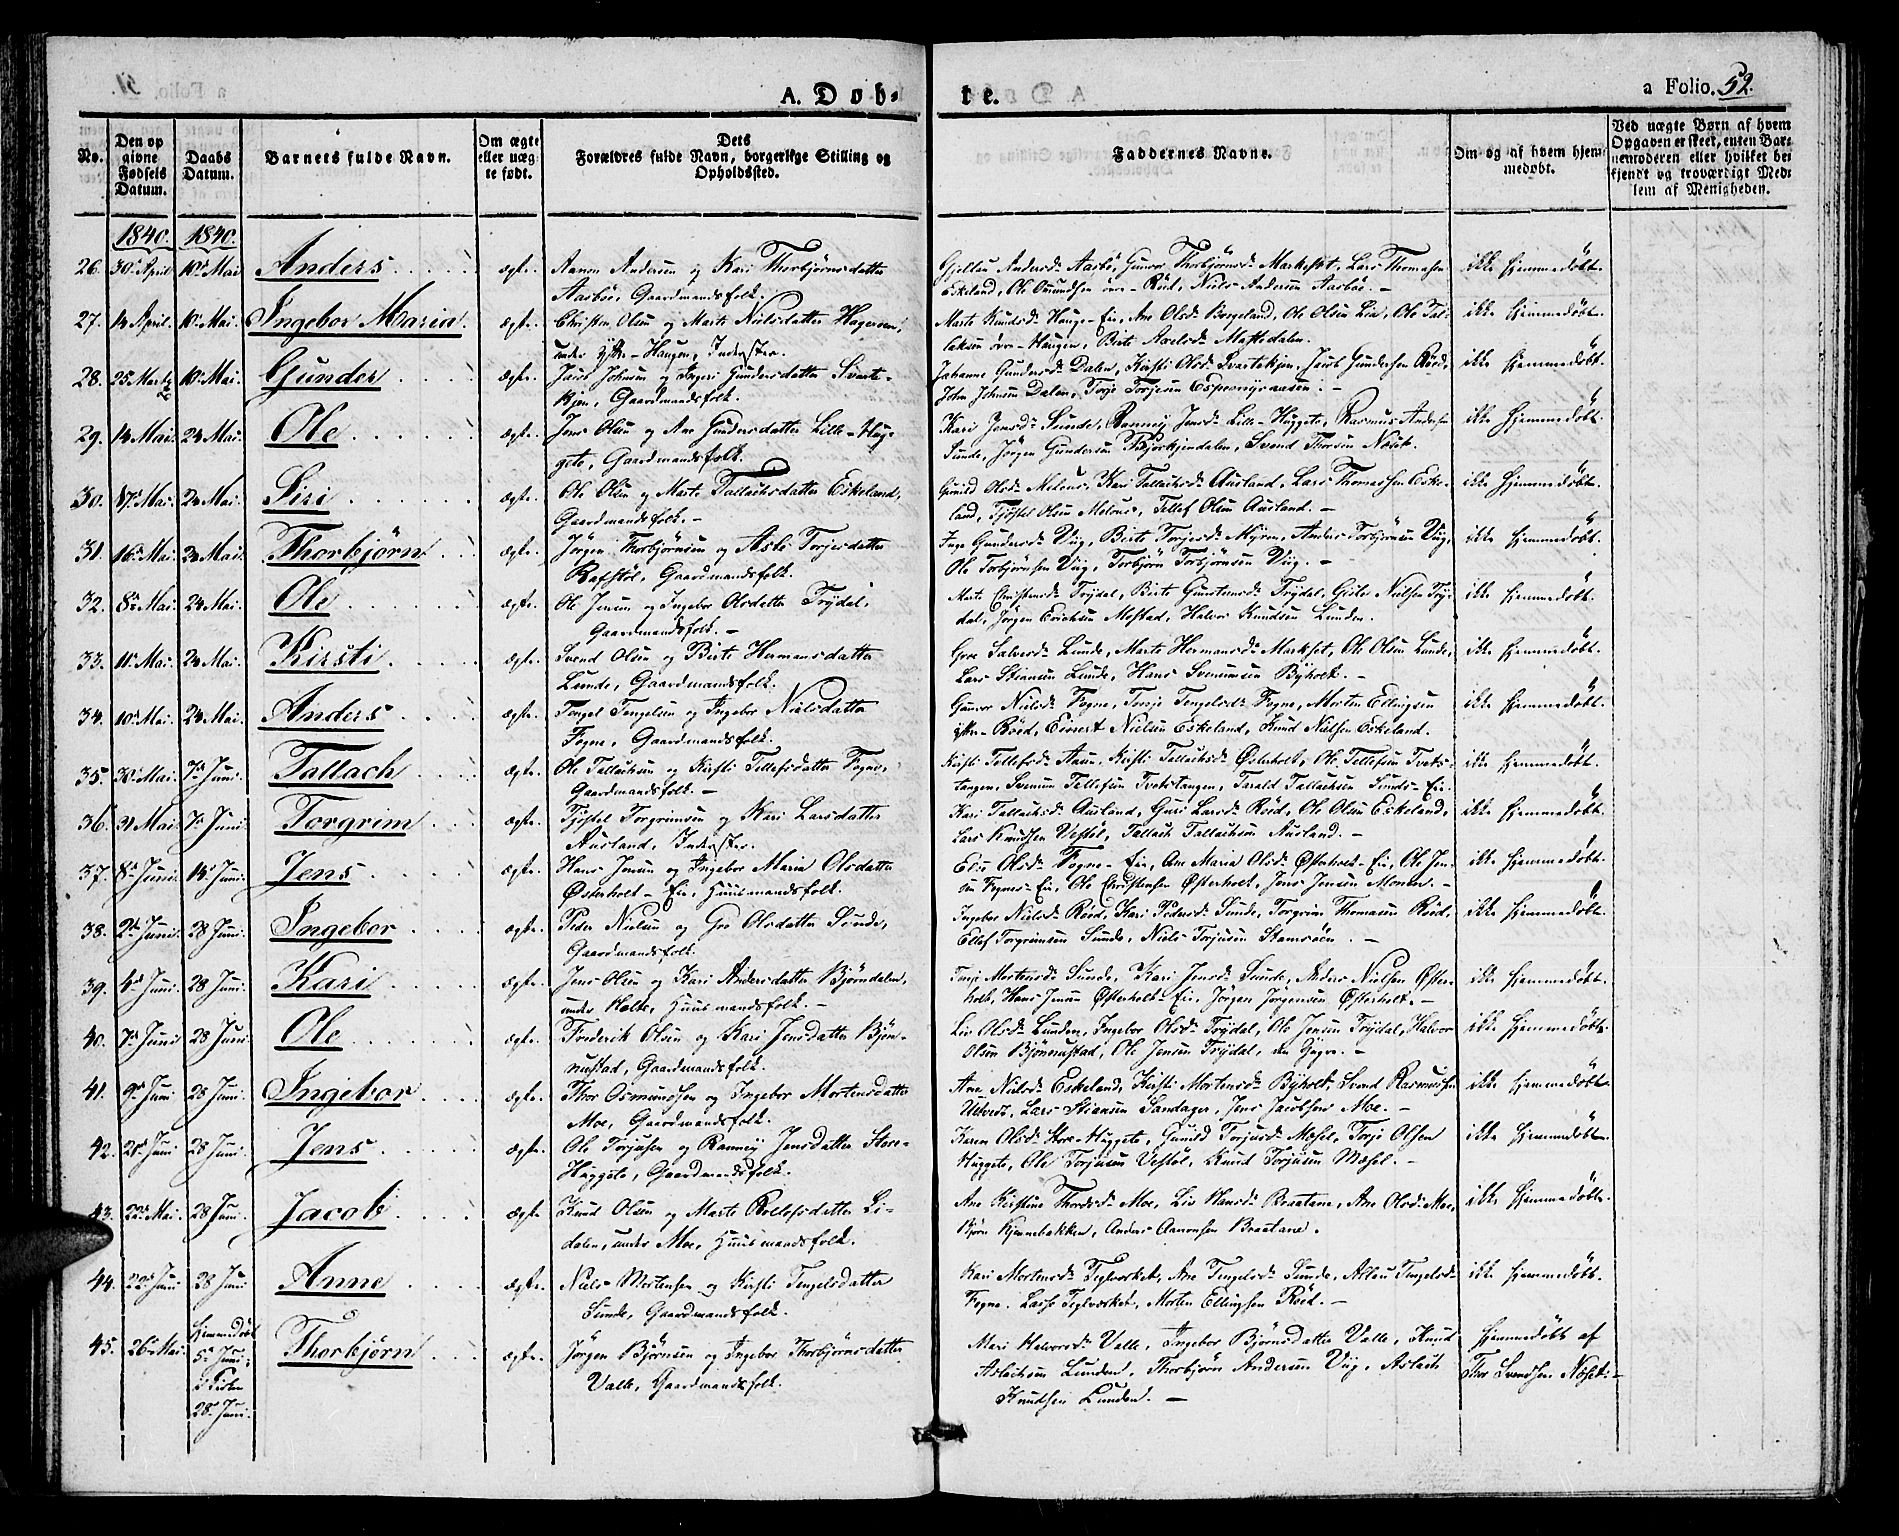 A. Døb-
te.
a Folio. 52.
No.
Den op
givne
Fødsels
Datum.
Daabs
Datum.
Barnets fulde Navn.
Om ægte
eller uæg
te født.
Dets
Forældres fulde Navn, borgerlige Stilling og
Opholdssted.
Faddernes Navne.
Om og af hvem hjem-
medøbt.
Ved uægte Børn af hvem
Opgaven er skeet, enten Bar
nemoderen eller hvilket be
kjendt og troværdigt Med-
lem af Menigheden.
1840. 1840.
26. 30 April 10 Mai Anders ægte. Aanon Andersen og Kari Thorbjørnsdatter
Aasbøe, Gaardmandsfolk.
Andersd. Aasbö, Gunvor Thorbjørnsd. Markeset, Lars Thomasen
Eskeland, Ole Omundsen övre-Röd, Niels Andersen Aasböe.
ikke hjemmedöbt.
27. 14 April. 10 Mai. Ingebor Maria. ægte. Christen Olsen og Marte Nielsdatter
under Haugen, Inderster.
Marte Knudsd. Hauge-Eie, Ane Olsd. Bergeland, Ole Olsen Lie, Ole Tal-
laksen övre-Haugen, Berte Axelsd.
ikke hjemmedöbt.
28. 25 Marts 10 Mai. Gunder ægte. Jacob Johnsen og Ingeri Gundersdatter Svarte-
kjen, Gaardmandsfolk.
Johanne Gundersd. Dalen, Kirsti Olsd. Svartekjen, Jacob Gundersen Röed,
John Johnsen Dalen, Torje Torjesen Espensmyraasen.
ikke hjemmedöbt.
29. 14 Mai. 24 Mai. Ole ægte. Jens Olsen og Ane Gundersdatter Lille-Hug-
gete, Gaardmandsfolk.
Kari Jensd. Sunde, Ranneig Jensd. Lille-Huggete, Rasmus Andersen
Sunde, Jörgen Gundersen Svend Thorsen
ikke hjemmedöbt.
30. 17 Mai. 24 Mai. Siri ægte. Ole Olsen og Marte Tallachsdatter Eskeland,
Gaardmandsfolk.
Gunild Olsd. Kari Tallachsd. Ausland, Lars Thomassen Eske-
land, Tjöstel Olsen Tellef Olsen Ausland.
ikke hjemmedöbt.
31. 16 Mai. 24 Mai. Thorbjörn ægte. Jörgen Thorbjörnsen og Torjesdatter
Rafstöl, Gaardmandsfolk.
Inge Gundersd. Viig, Berte Torjesd. Myren, Anders Torbjörnsen Viig,
Ole Torbjörnsen Viig, Torbjörn Torbjörnsen Viig.
ikke hjemmedöbt.
32. 8 Mai. 24 Mai. Ole ægte. Ole Jensen og Ingebor Olsdatter Trydal,
Gaardmandsfolk.
Marte Christensd. Trydal, Berte Gunstensd. Trydal, Gisle Nielsen Try-
dal, Jörgen Erichsen Mostad, Halvor Knudsen Lunden.
ikke hjemmedöbt.
33. 11 Mai. 24 Mai. Kirsti ægte. Svend Olsen og Berte Hermansdatter
Lunde, Gaardmandsfolk.
Groe Salvesd. Lunde, Marte Hermansd. Markset, Ole Olsen Lunde,
Lars Stiansen Lunde, Hans Svennsen Byholt.
ikke hjemmedöbt.
34. 10 Mai. 24 Mai. Anders ægte. Tengel Tengelsen og Ingebor Nielsdatter
Fogne, Gaardmandsfolk.
Gunvor Nielsd. Fogne, Tengelsd. Fogne, Morten Ellingsen
Röed, Einert Nielsen Eskeland, Knud Nielsen Eskeland.
ikke hjemmedöbt.
35. Mai. 7 Juni. Tallach ægte. Ole Tallachsen og Kirsti Tellefsdatter Fogne,
Gaardmandsfolk.
Kirsti Tellefsd. Kirsti Tallachsd. Österholt, Ole Tellefsen Tveks-
tangen, Svenum Tellefsen Tvekstangen, Tarald Tallachsen Sunds-Eie.
ikke hjemmedöbt.
36. 31 Mai 7 Juni. Torgrim ægte. Tjöstel Torgrimsen og Kari Larsdatter
Ausland, Inderster.
Kari Tallachsd. Ausland, Guri Larsd. Röed, Ole Olsen Eskeland,
Lars Knudsen Vestöl, Tallach Tallachsen Ausland.
ikke hjemmedöbt.
37. 8 Juni. 14 Juni. Jens ægte. Hans Jensen og Ingebor Maria Olsdatter
Österholt-Eie, Huusmandsfolk.
Olsd. Fogne-Eie, Ane Maria Olsd. Österholt-Eie, Ole Jen-
sen Fogne-Eie, Ole Christensen Österholt, Jens Jensen
ikke hjemmedöbt.
38. 2 Juni. 28 Juni. Ingebor ægte. Peder Nielsen og Gro Olsdatter Sunde,
Gaardmandsfolk.
Ingebor Nielsd. Röed, Kari Pedersd. Sunde, Torgrim Thomasen Röed,
Ellef Torgrimsen Sunde, Niels Torjusen Stamsöen.
ikke hjemmedöbt.
39. Juni. 28 Juni. Kari ægte. Jens Olsen og Kari Andersdatter Björndalen,
under Holte, Huusmandsfolk.
Mortensd. Sunde, Kari Jensd. Sunde, Anders Nielsen Öster-
holt, Hans Jensen Österholt-Eie, Jörgen Jörgensen Österholt.
ikke hjemmedöbt.
40. 7 Juni 28 Juni. Ole ægte. Frederik Olsen og Kari Jensdatter Björn-
mustad, Gaardmandsfolk.
Liv Olsd. Lunden, Ingebor Olsd. Trydal, Ole Jensen Trydal, Halvor
Olsen Björnmustad, Ole Jensen Trydal, den Yngre.
ikke hjemmedöbt.
41. 9 Juni 28 Juni. Ingebor ægte. Thor Osmundsen og Ingebor Mortensdatter
Moe, Gaardmandsfolk.
Ane Nielsd. Eskeland, Kirsti Mortensd. Byholt, Svend Rasmussen
Lars Stiansen Sandager, Jens Jacobsen Moe.
ikke hjemmedöbt.
42. Juni 28 Juni. Jens ægte. Ole Torjusen og Ranneig Jensdatter Store-
Huggete, Gaardmandsfolk.
Karen Olsd. Store-Huggete, Gunild Torjusd. Mæsel, Torje Olsen
Huggete, Ole Torjusen Vestöl, Knud Torjusen Mæsel.
ikke hjemmedöbt.
43. 22 Mai. 28 Juni. Jacob ægte. Knud Olsen og Marte Rollefsdatter Li-
dalen, under Moe, Huusmandsfolk.
Ane Kirstine Thorsd. Moe, Liv Hansd. Braatane, Ane Olsd. Moe,
Björn Kjennebakken, Anders Aanonsen Braatane.
ikke hjemmedöbt.
44. Juni 28 Juni. Anne ægte. Niels Mortensen og Kirsti Tengelsdatter
Sunde, Gaardmandsfolk.
Kari Mortensd. Teglverket, Ane Tengelsd. Sunde, Tengelsd.
Fogne, Lasse Teglværket, Morten Ellingsen Röed.
ikke hjemmedöbt.
45. 26 Mai. Hjemmedöbt
5 Juni
i Kirken
28 Juni.
Thorbjörn ægte. Jörgen Björnsen og Ingebor Thorbjörnsdatter
Valle, Gaardmandsfolk.
Mari Halvorsd. Valle, Ingebor Björnsdatter Valle, Knud
Aslachsen Lunden, Thorbjörn Andersen Viig, Aslach
Knudsen Lunden.
hjemmedöbt af
Thor Svendsen Næset.